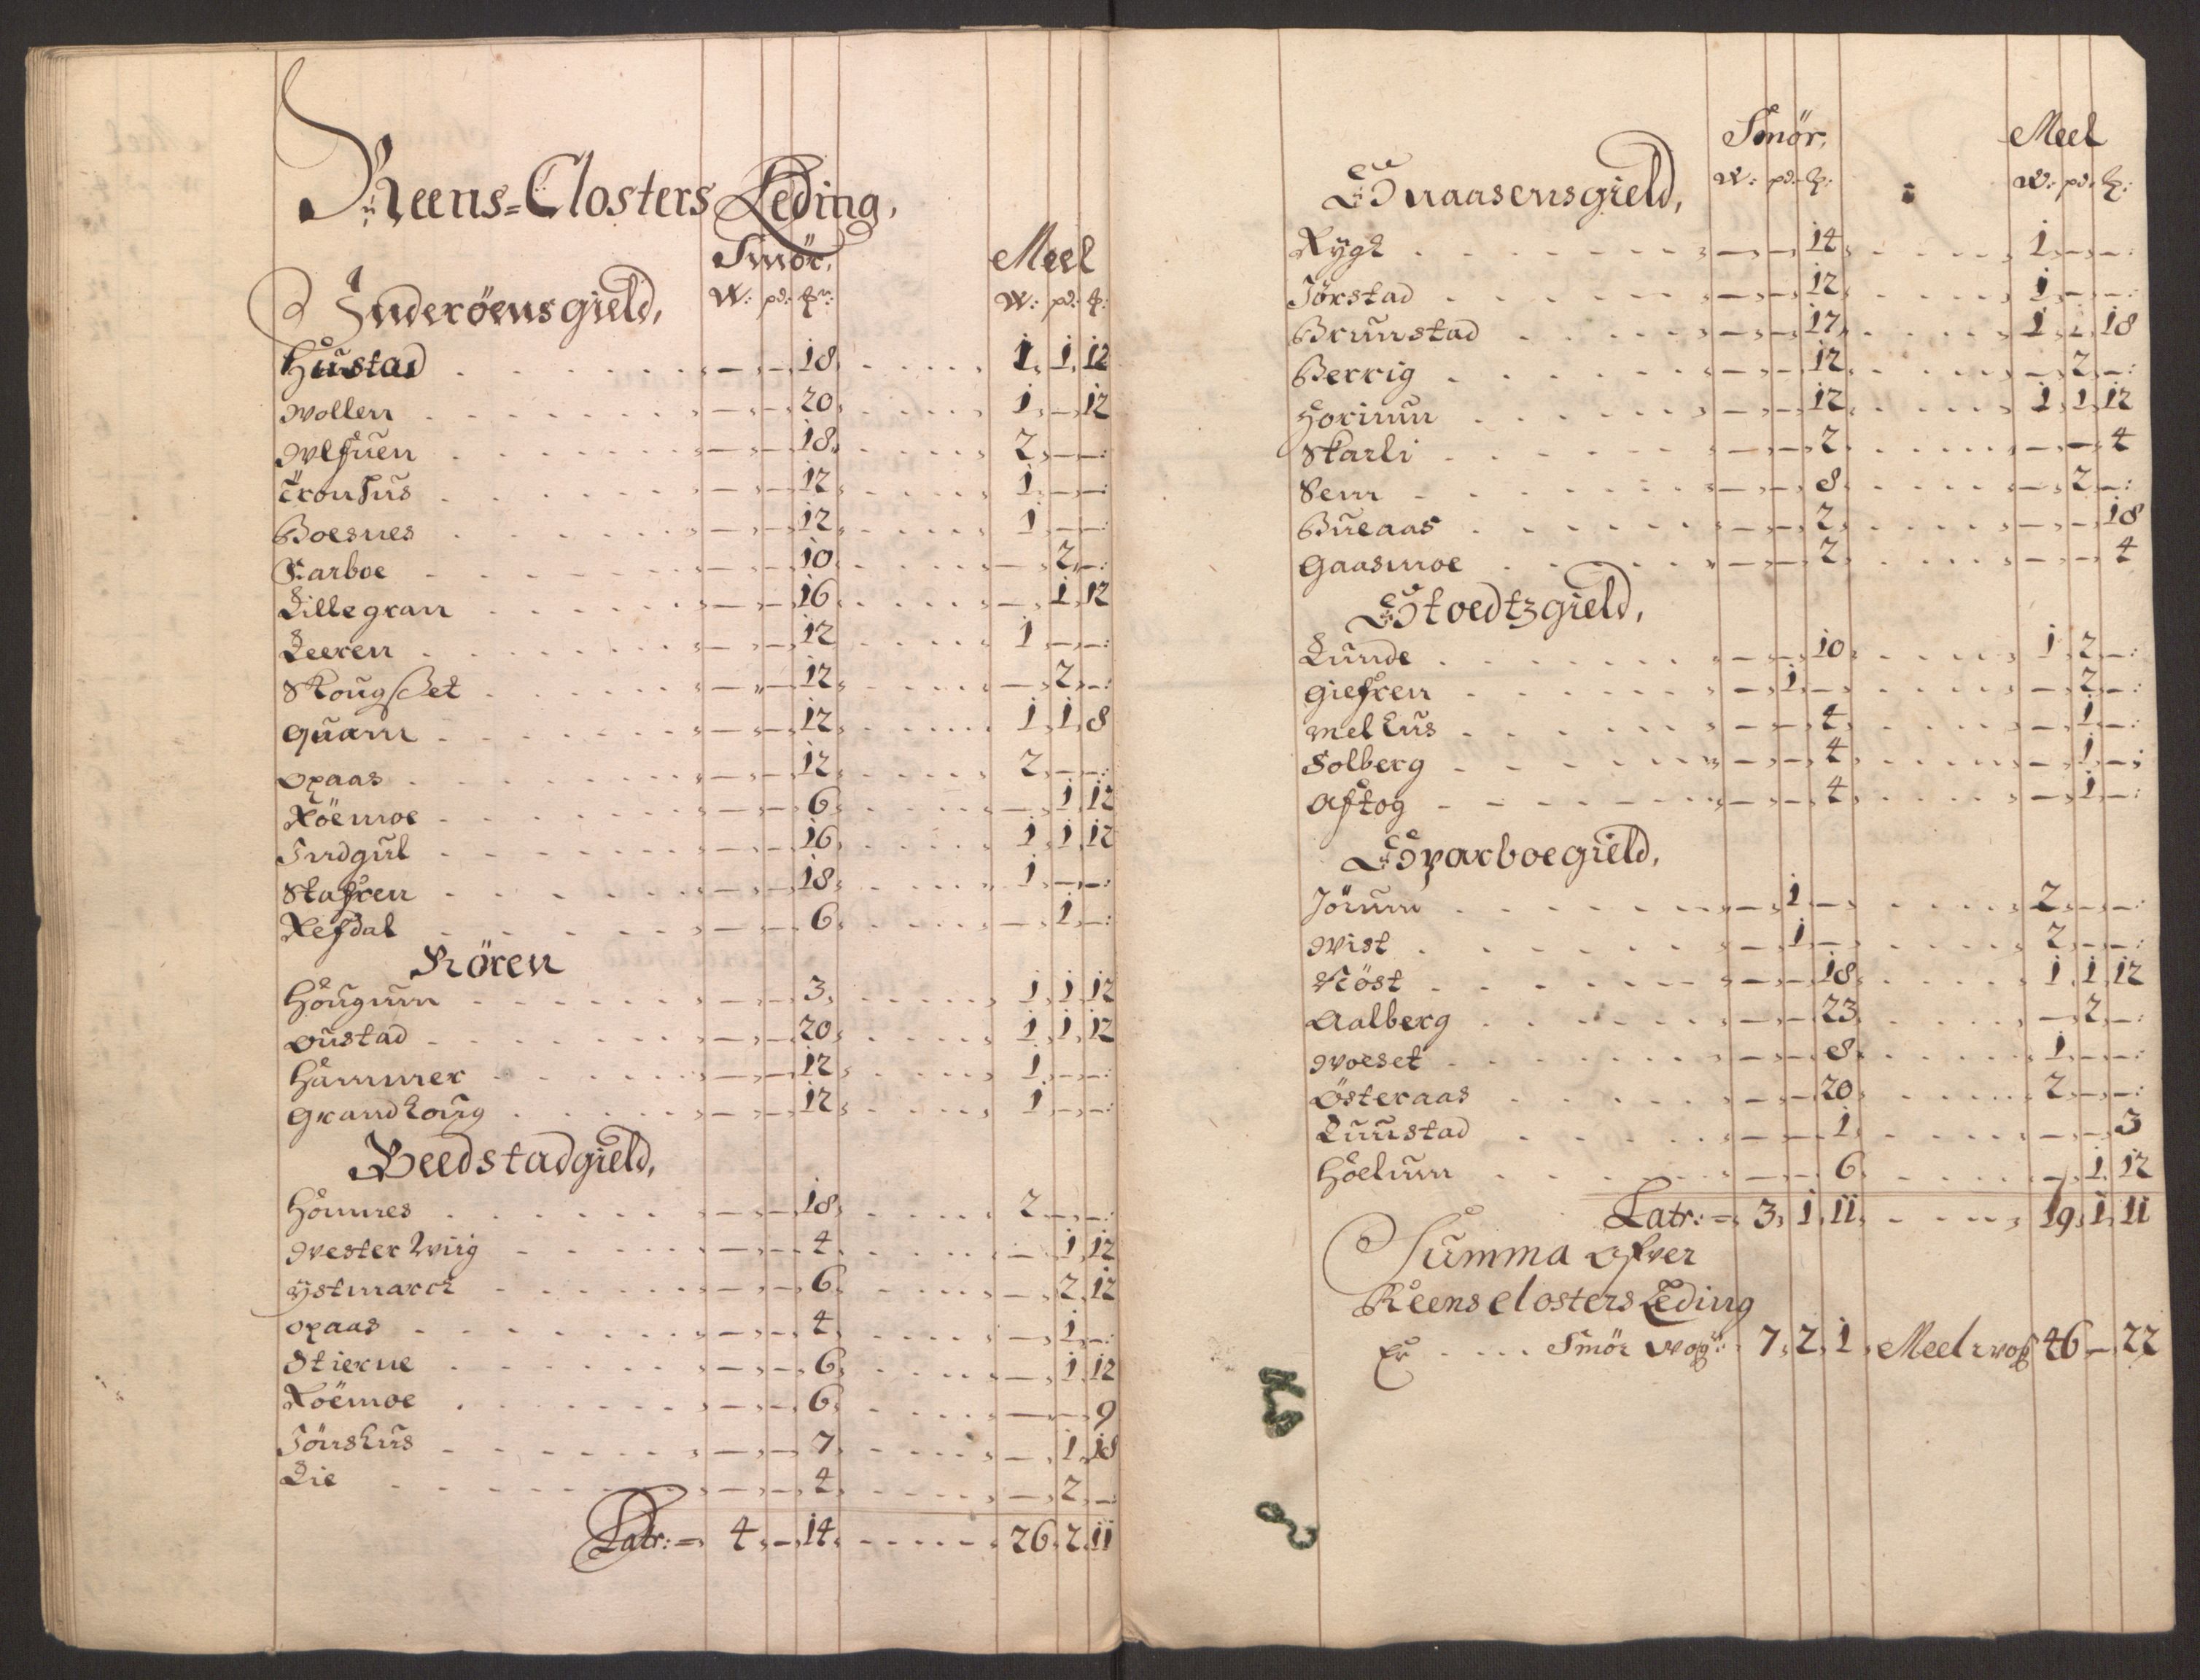 Reens=Closters Leding,
Smör, Meel
Inderöens gield, W: pd: ℔: W: pd: ℔:
Hustad 18 1 1 12
Wollen 20 1 — 12
Wlfuen 18 2 — —
Tronhus 12 1 — —
Boesnes 12 1 — —
Farboe 10 — 2 —
Lillegran 16 — 1 12
Leeren 12 1 — —
Skougset 12 — 2 —
Quam 12 1 1 8
Opaas 12 2 — —
Röemoe 6 — 1 12
Indgul 16 1 1 12
Stafren 18 1 — —
Refdal 6 — 1 —
Rören
Hougum 3 1 1 12
Oustad 20 1 1 12
Hammer 12 1 — —
Grandhoug 12 1 — —
Beedstadgield,
Hounes 18 2 — —
Westerwiig 4 — 1 12
Ystmarck 6 — 2 12
Opaas 4 — 1 —
Stierne 6 — 1 12
Röemoe 6 — — 9
Jönshus 7 — 1 18
Lie 4 — 2 —
Latr:= 4 — 14 26 2 11
Smör, Meel
Snaasensgield, W: pd: ℔: W: pd: ℔:
Rygh 14 1 — —
Jörstad 12 1 — —
Brunstad 17 1 1 18
Berrig 12 — 2 —
Horium 12 1 1 12
Skarli 2 — — 4
Sem 8 — 2 —
Bueaas 2 — — 18
Gaasmoe 2 — — 4
Stoedtzgield,
Lunde 10 1 2 —
Giefren 1 — — 2 —
Melhus 4 — 1 —
Solberg 4 — 1 —
Aftog 4 — 1 —
Sparboegield,
Jörum 1 — 2 — —
Wist 1 — 2 — —
Röst 18 1 1 12
Aalberg 23 — 2 —
Woeset 8 1 — —
Österaas 20 2 — —
Luustad 1 — — 3
Hoelum 6 — 1 12
Latr:= 3 1 11 19 1 11
Summa Ofver
Reens closters Leding
Er Smör wog: 7 2 1 Meel wog 46 — 22